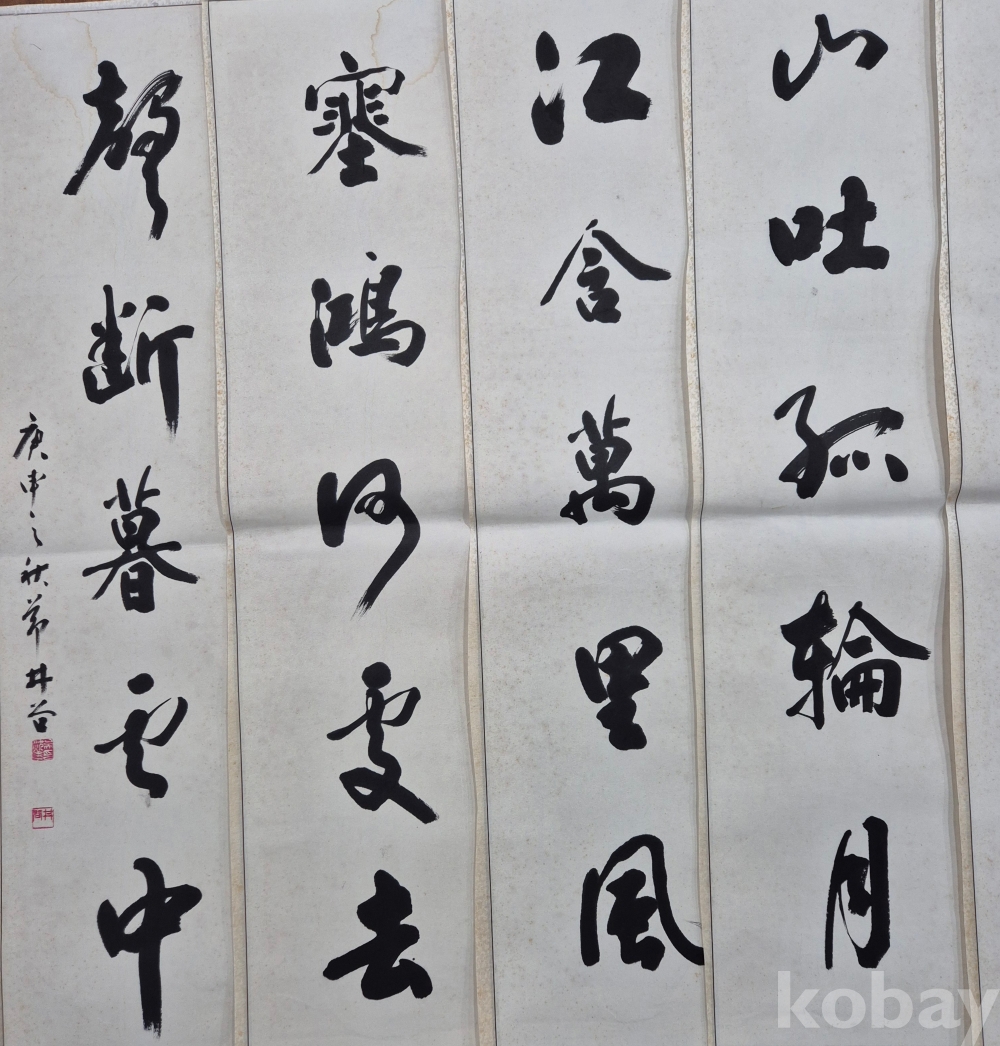 山吐孤輪月
江含萬里風
塞鴻何處去
聲斷暮雲中
庚申之秋 井谷
kobay